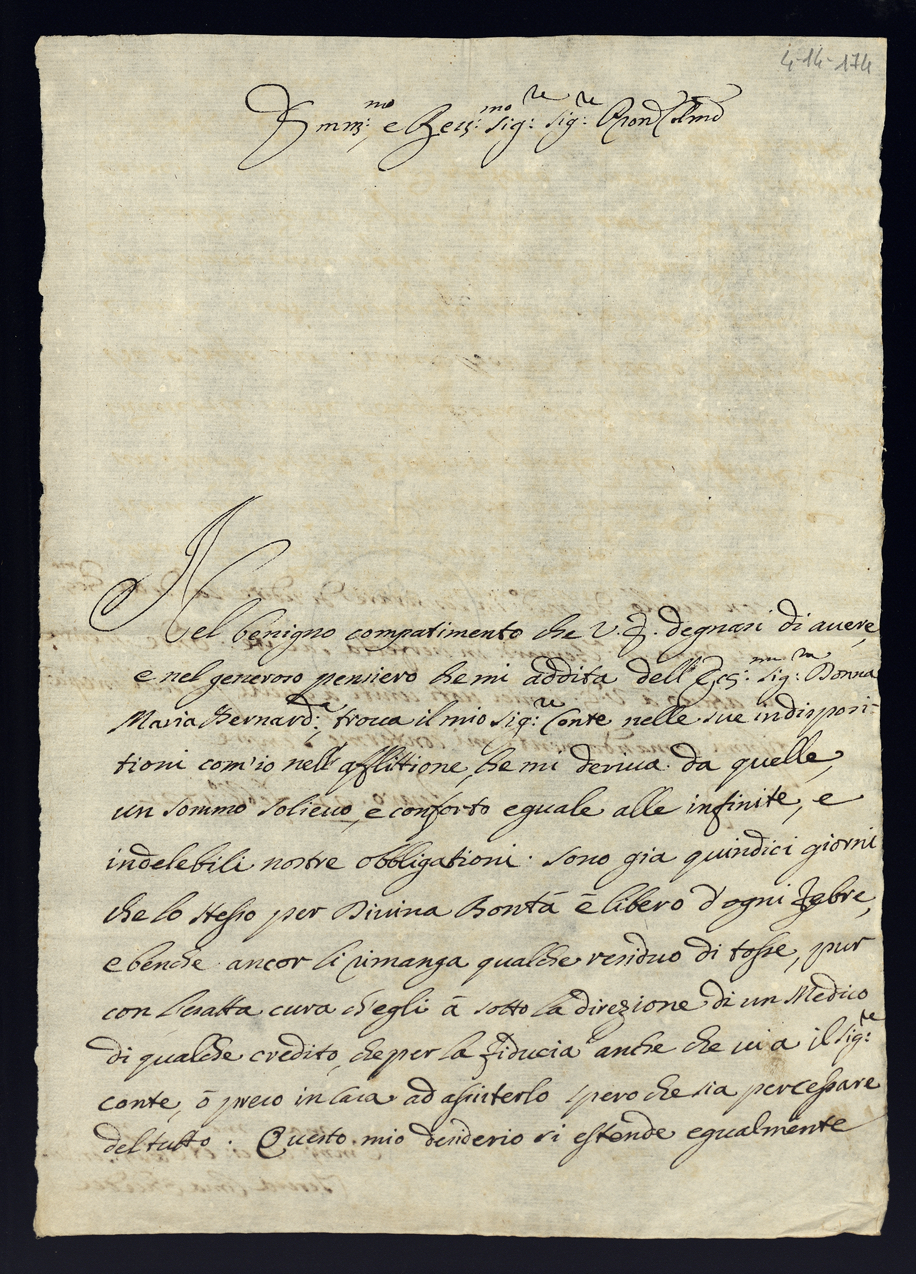 4-14-174
Emin:mo e Rev:mo Sig:re Sig:re Pron Colmo
Nel benigno compatimento che V. E. degnasi di avere,
e nel generoso pensiero che mi addita dell'Ecc:ma Sig:ra Donna
Maria Bernard:a, troua il mio Sig:re Conte nelle sue indisposi-
tioni com'io nell'afflittione, che mi deriua da quelle,
un sommo solieuo, e conforto eguale alle infinite, e
indelebili nostre obbligationi. Sono gia quindici giorni
che lo stesso per Diuina Bontà è libero d'ogni febre,
e benche ancor li rimanga qualche residuo di tosse, pur
con l'esatta cura ch'egli à sotto la direzione di un Medico
di qualche credito, che per la fiducia anche che ui a il Sig:re
Conte, ò preso in Casa ad assisterlo spero che sia per cessare
del tutto. Questo mio desiderio si estende egualmente